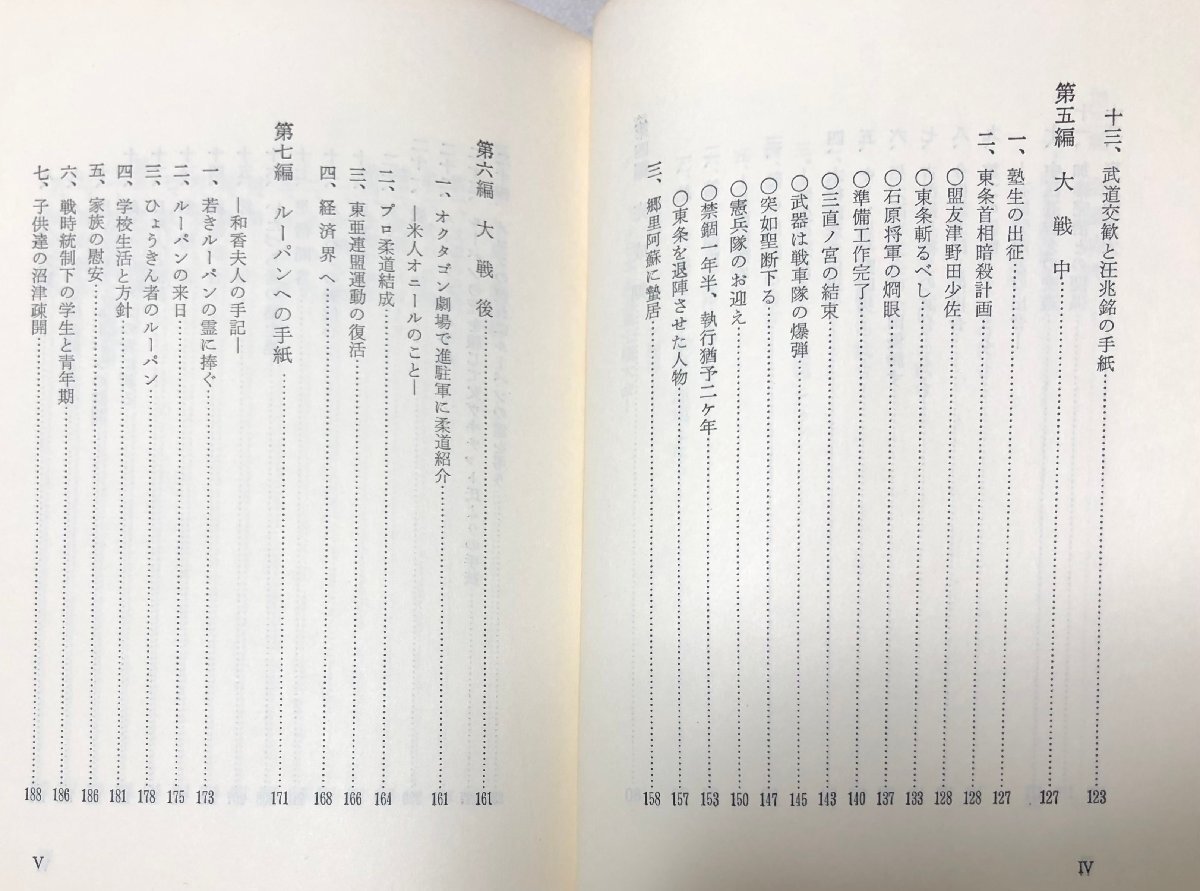 十三、武道交歓と汪兆銘の手紙……123
第五編　大戦中……127
一、塾生の出征……127
二、東条首相暗殺計画……128
〇盟友津野田少佐……128
〇東条斬るべし……133
〇石原将軍の烱眼……137
〇準備工作完了……140
〇三直ノ宮の結束……143
〇武器は戦車隊の爆弾……145
〇突如聖断下る……147
〇憲兵隊のお迎え……150
〇禁錮一年半、執行猶予二ケ年……153
〇東条を退陣させた人物……157
三、郷里阿蘇に蟄居……158
IV
第六編　大戦後……161
一、オクタゴン劇場で進駐軍に柔道紹介……161
―米人オニールのこと―
二、プロ柔道結成……164
三、東亜連盟運動の復活……166
四、経済界へ……168
第七編　ルーパンへの手紙……171
―和香夫人の手記―
一、若きルーパンの霊に捧ぐ……173
二、ルーパンの来日……175
三、ひょうきん者のルーパン……178
四、学校生活と方針……181
五、家族の慰安……186
六、戦時統制下の学生と青年期……186
七、子供達の沼津疎開……188
V